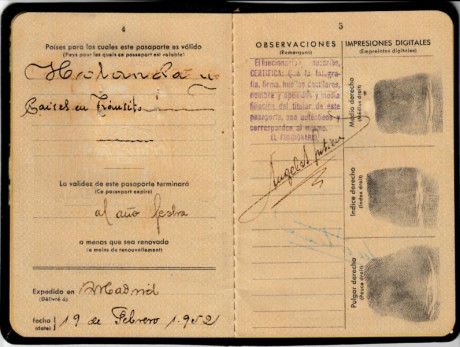 4
Países para los cuales este pasaporte es válido
(Pays pour les quels ce passeport est valable)
Holanda y
Paises en Tránsito
La validez de este pasaporte terminará
(Ce passeport expire)
al año fecha
a menos que sea renovado
(a moins de renouvellement)
Expedido en Madrid
(Délivré á)
fecha 19 de Febrero 1.952
(date)
5
OBSERVACIONES
(Remarques)
El funcionario
CERTIFICA: que la fotogra-
fía, firma,
nombre y apellidos y media
filiación del titular de este
pasaporte, son auténticos y
corresponden al mismo.
EL FUNCIONARIO
IMPRESIONES DIGITALES
(Empreintes digitales)
Medio derecho
(Médius droit)
Indice derecho
(Index droit)
Pulgar derecho
(Pouce droit)